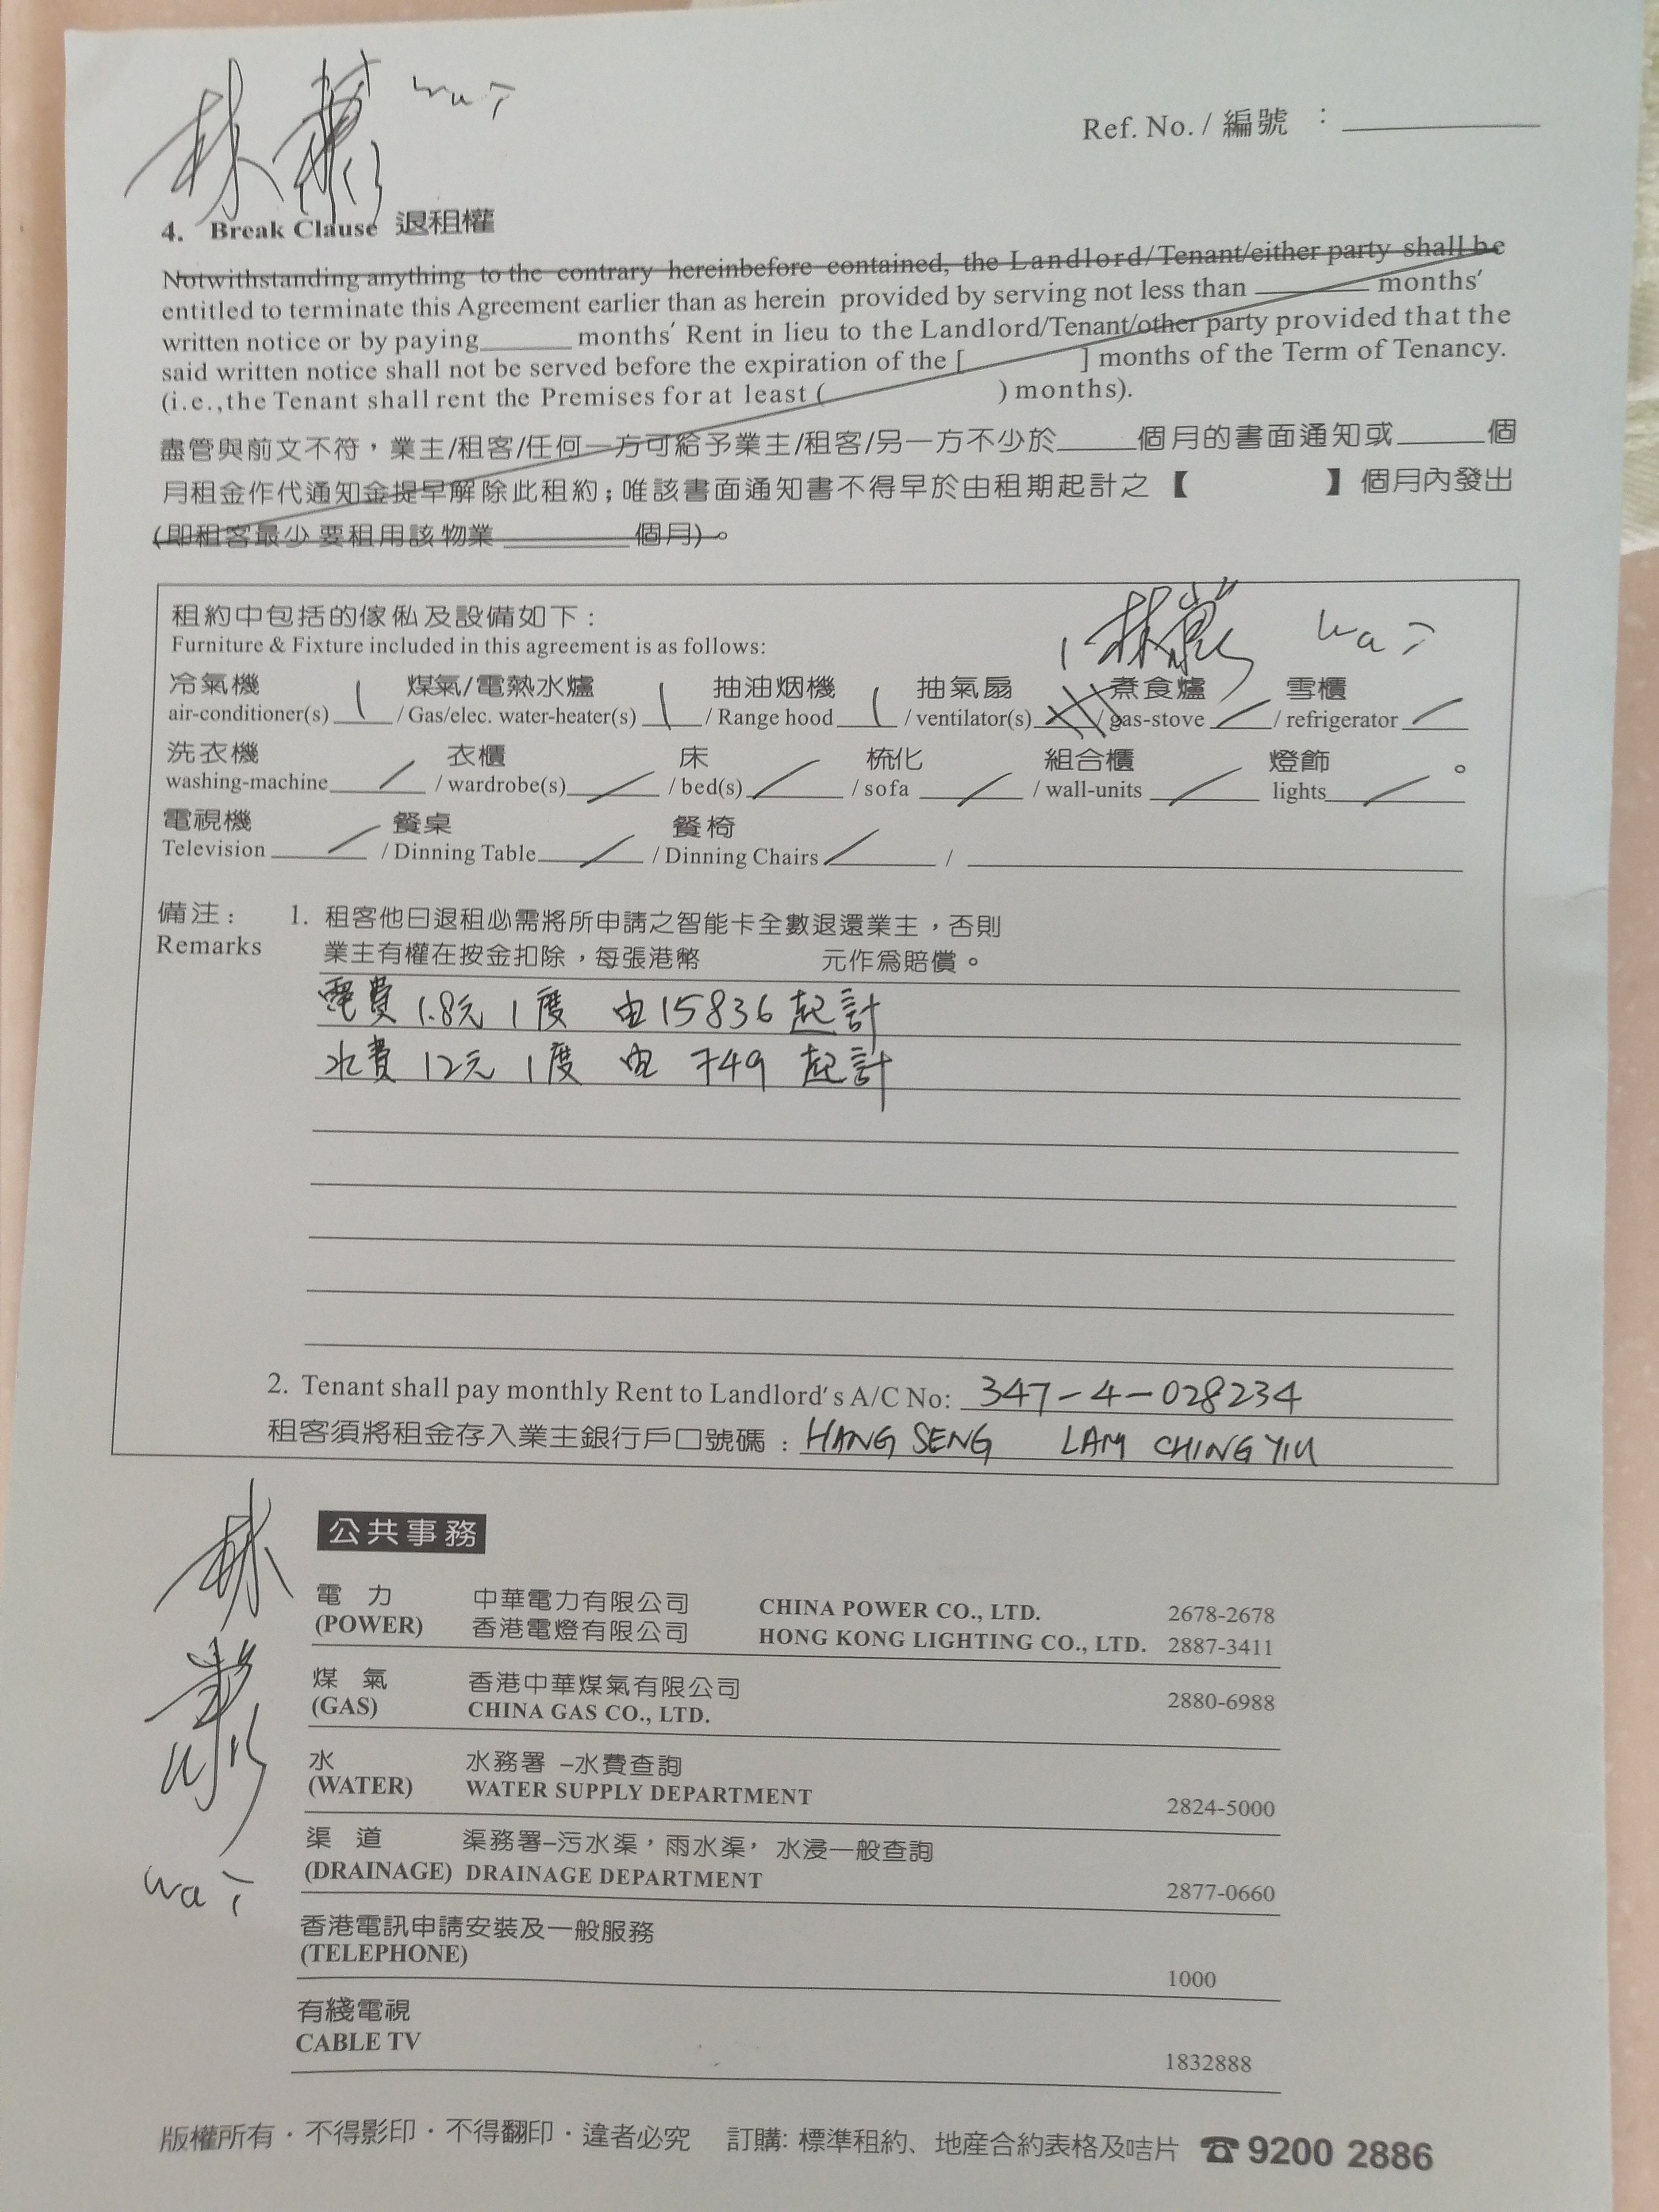 林 wai
Ref. No. / 編號 :
4. Break Clause 退租權
Notwithstanding anything to the contrary hereinbefore contained, the Landlord/Tenant/either party shall be
entitled to terminate this Agreement earlier than as herein provided by serving not less than ______ months'
written notice or by paying______ months' Rent in lieu to the Landlord/Tenant/other party provided that the
said written notice shall not be served before the expiration of the [ ] months of the Term of Tenancy.
(i.e.,the Tenant shall rent the Premises for at least ( ) months).
盡管與前文不符，業主/租客/任何一方可給予業主/租客/另一方不少於_____個月的書面通知或_____個
月租金作代通知金提早解除此租約；唯該書面通知書不得早於由租期起計之【 】個月內發出
(即租客最少要租用該物業 ______個月)。
租約中包括的傢俬及設備如下：
Furniture & Fixture included in this agreement is as follows:
林 wai
冷氣機 煤氣/電熱水爐 抽油烟機 抽氣扇 煮食爐 雪櫃
air-conditioner(s) 1 / Gas/elec. water-heater(s) 1 / Range hood 1 / ventilator(s) / gas-stove / / refrigerator /
洗衣機 衣櫃 床 梳化 組合櫃 燈飾 。
washing-machine / / wardrobe(s) / / bed(s) / / sofa / / wall-units / lights /
電視機 餐桌 餐椅
Television / / Dinning Table / / Dinning Chairs / /
備注： 1. 租客他日退租必需將所申請之智能卡全數退還業主，否則
Remarks 業主有權在按金扣除，每張港幣 元作爲賠償。
電費 1.8元 1度 由15836起計
水費 12元 1度 由 749 起計
2. Tenant shall pay monthly Rent to Landlord's A/C No: 347-4-028234
租客須將租金存入業主銀行戶口號碼：HANG SENG LAM CHING YIU
林
wai
公共事務
電 力 中華電力有限公司 CHINA POWER CO., LTD. 2678-2678
(POWER) 香港電燈有限公司 HONG KONG LIGHTING CO., LTD. 2887-3411
煤 氣 香港中華煤氣有限公司
(GAS) CHINA GAS CO., LTD. 2880-6988
水 水務署 -水費查詢
(WATER) WATER SUPPLY DEPARTMENT 2824-5000
渠 道 渠務署-污水渠，雨水渠，水浸一般查詢
(DRAINAGE) DRAINAGE DEPARTMENT 2877-0660
香港電訊申請安裝及一般服務
(TELEPHONE) 1000
有綫電視
CABLE TV 1832888
版權所有・不得影印・不得翻印・違者必究 訂購: 標準租約、地産合約表格及咭片 ☎9200 2886